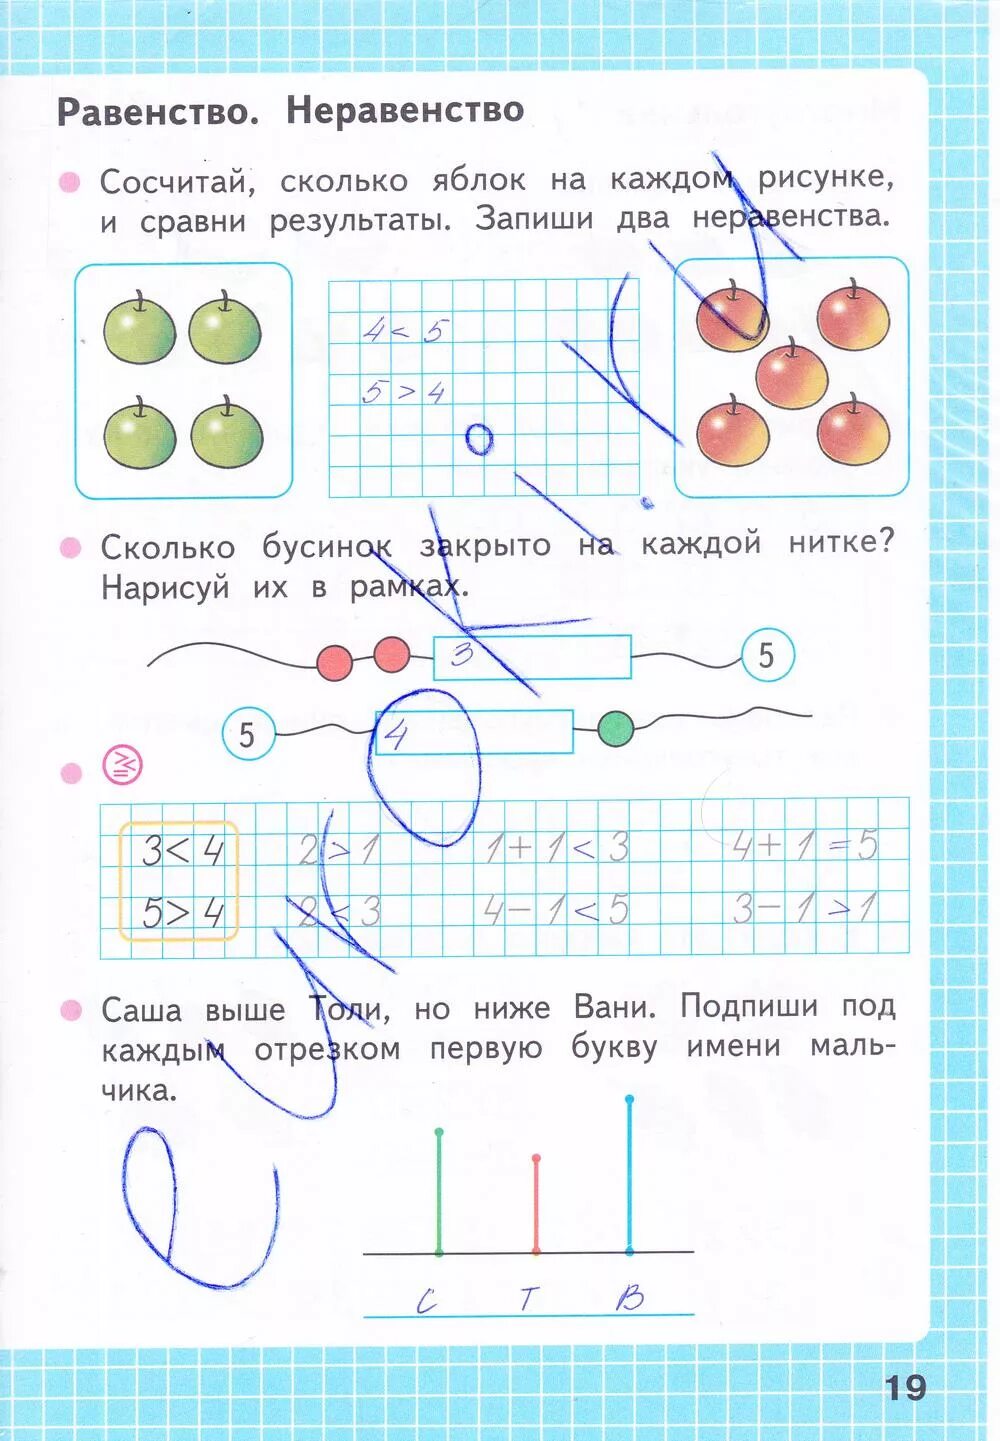 Равенство. Неравенство
Сосчитай, сколько яблок на каждом рисунке,
и сравни результаты. Запиши два неравенства.
4 < 5
5 > 4
Сколько бусинок закрыто на каждой нитке?
Нарисуй их в рамках.
3 5
5 4
3 < 4 2 > 1 1 + 1 < 3 4 + 1 = 5
5 > 4 2 < 3 4 − 1 < 5 3 − 1 > 1
Саша выше Толи, но ниже Вани. Подпиши под
каждым отрезком первую букву имени маль-
чика.
С Т В
19